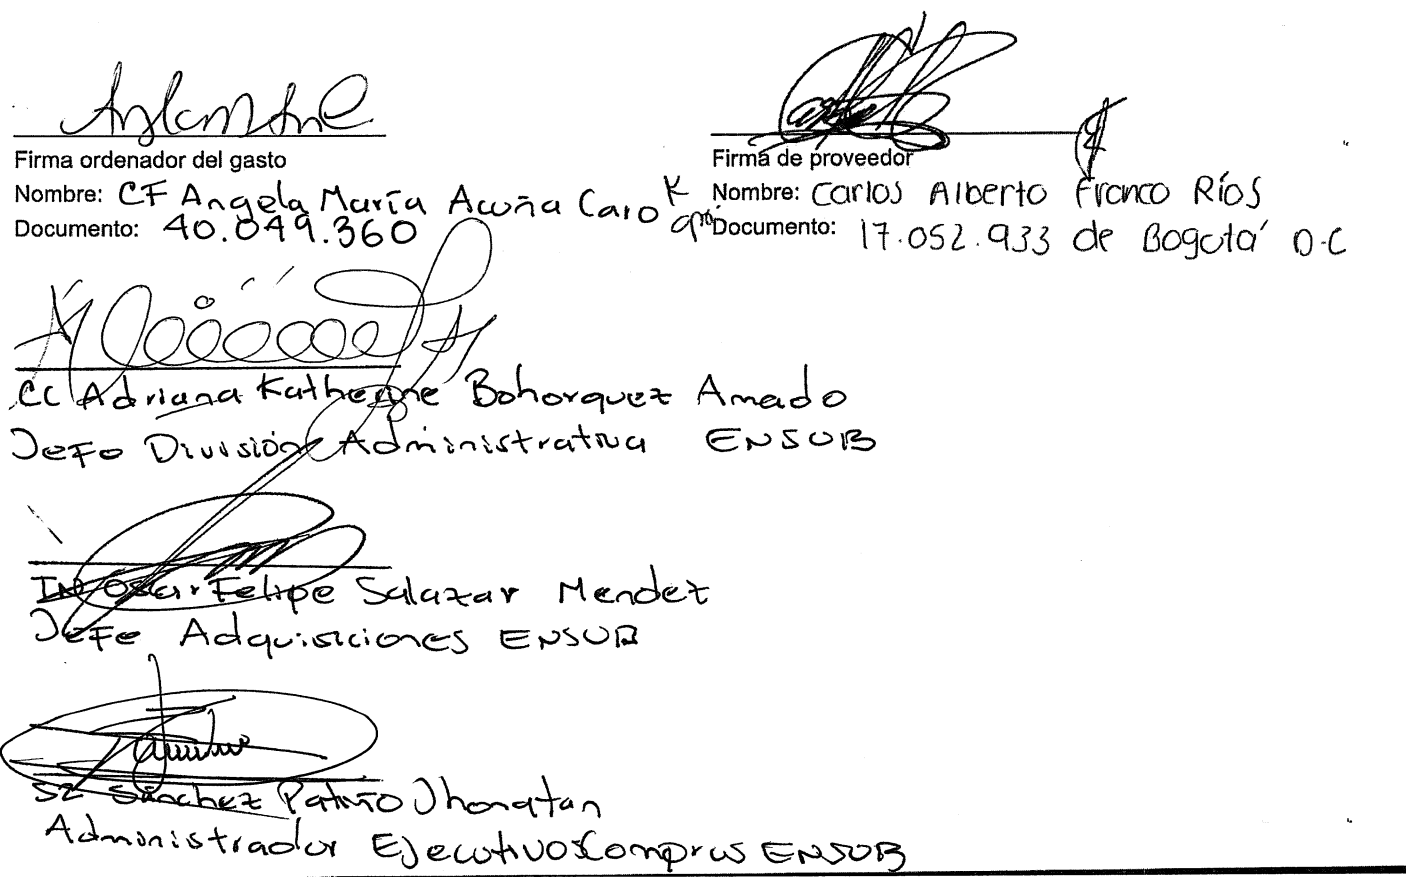 Firma ordenador del gasto
Nombre: CF Angela María Acuña Caro
Documento: 40.049.360
Firma de proveedor
Nombre: Carlos Alberto Franco Ríos
Documento: 17.052.933 de Bogotá D.C
CC Adriana Katherine Bohorquez Amado
Jefe División Administrativa ENSUB
Oscar Felipe Salazar Mendez
Jefe Adquisiciones ENSUB
S2 Sánchez Patiño Jhonatan
Administrador Ejecutivo Compras ENSUB